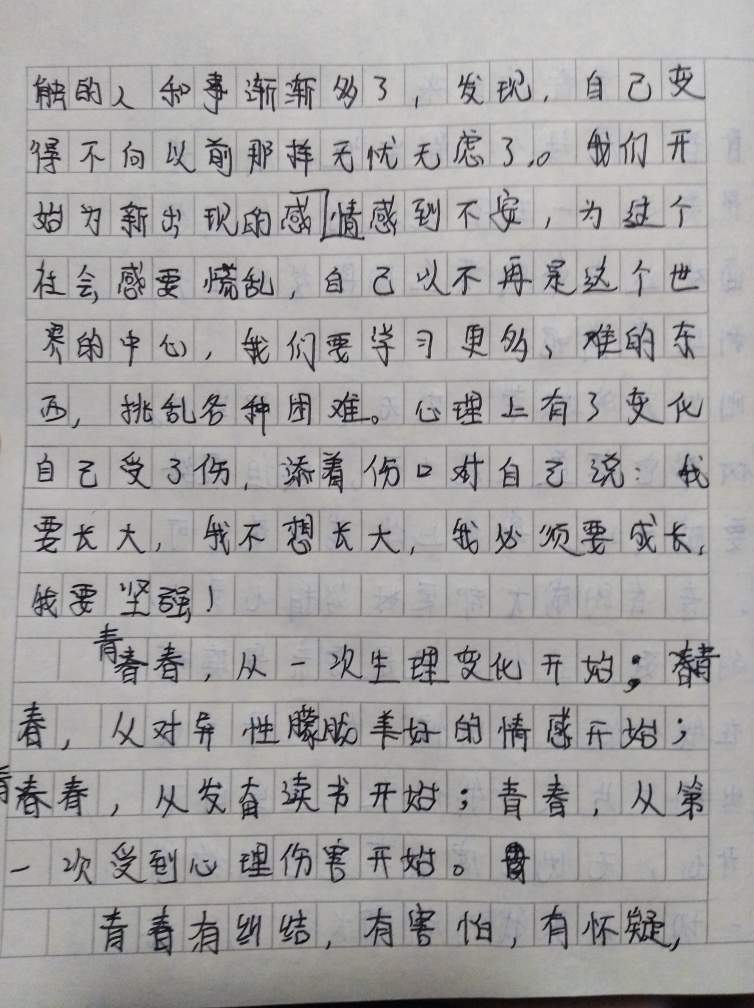 触的人和事渐渐多了，发现，自己变
得不向以前那样无忧无虑了。我们开
始为新出现的感情感到不安，为这个
社会感要慌乱，自己以不再是这个世
界的中心，我们要学习更多、难的东
西，挑乱各种困难。心理上有了变化
自己受了伤，添着伤口对自己说：我
要长大，我不想长大，我必须要成长，
我要坚强！
青春，从一次生理变化开始；青
春，从对异性朦胧美好的情感开始；
青春，从发奋读书开始；青春，从第
一次受到心理伤害开始。
青春有纠结，有害怕，有怀疑，